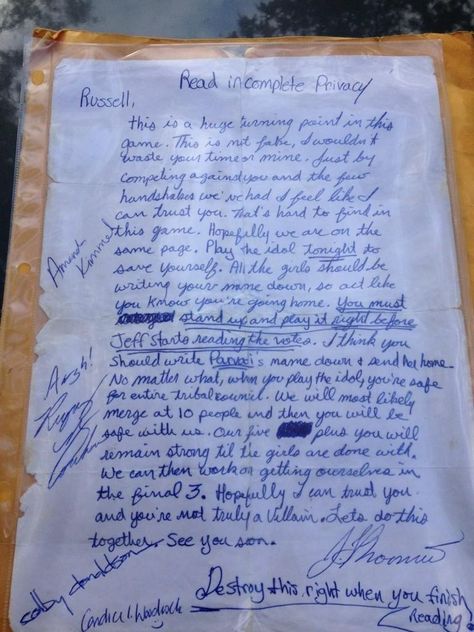 Read in complete Privacy
Russell,
this is a huge turning point in this
game. This is not false, I wouldn't
waste your time or mine. Just by
competing against you and the few
handshakes we've had I feel like I
can trust you. That's hard to find in
this game. Hopefully we are on the
same page. Play the idol tonight to
save yourself. All the girls should be
writing your name down, so act like
you know you're going home. You must
stand up and play it right before
Jeff starts reading the votes. I think you
should write Parvati's name down & send her home.
No matter what, when you play the idol, you're safe
for entire tribal council. We will most likely
merge at 10 people and then you will be
safe with us. Our five plus you will
remain strong til the girls are done with.
We can then work on getting ourselves in
the final 3. Hopefully I can trust you
and you're not truly a Villain. Lets do this
together. See you soon.
JThomas
Destroy this right when you finish
Reading
Amanda
Kimmel
Rupert
colby donaldson
Candice L. Woodcock